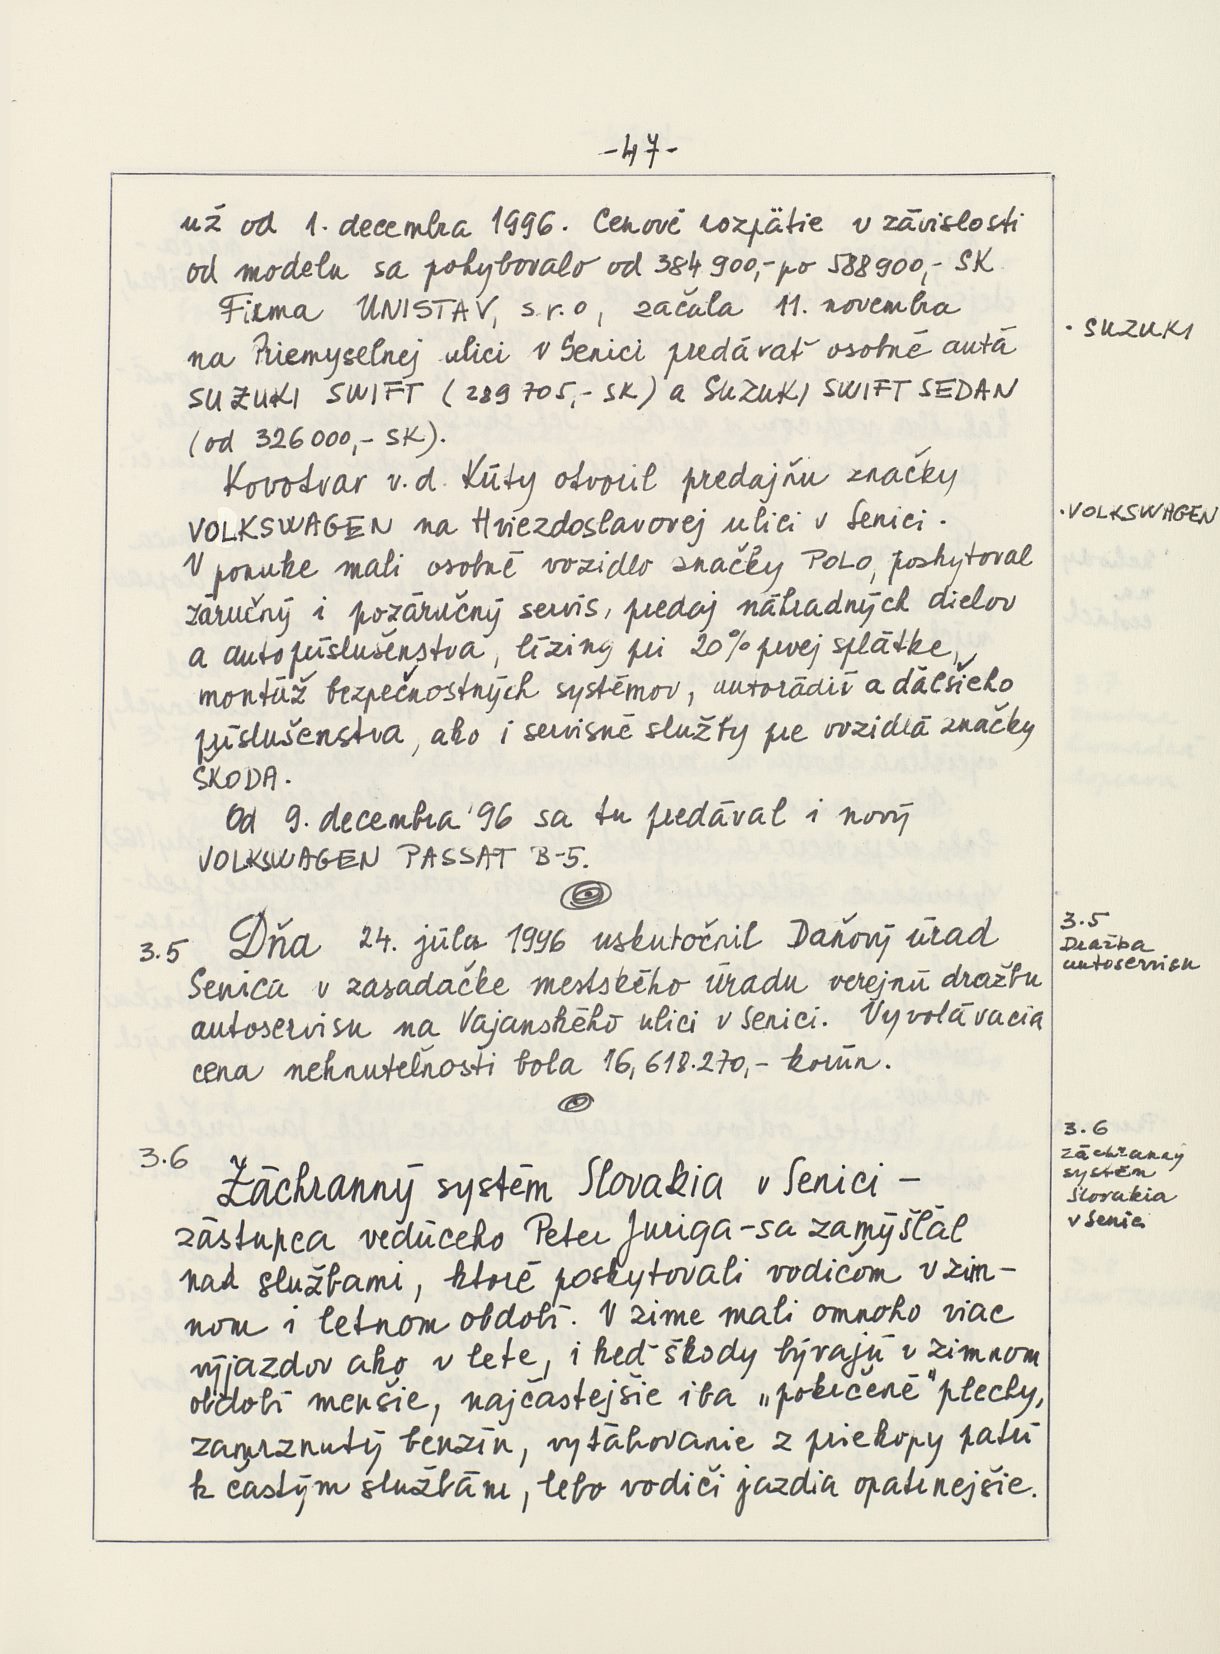 -47-
už od 1. decembra 1996. Cenové rozpätie v závislosti
od modelu sa pohybovalo od 384 900,- po 588 900,- SK
Firma UNISTAV, s.r.o, začala 11. novembra
na Priemyselnej ulici v Senici predávať osobné autá
SUZUKI SWIFT (289 705,- SK) a SUZUKI SWIFT SEDAN
(od 326 000,- SK).
· SUZUKI
Kovotvar v.d. Kúty otvoril predajňu značky
VOLKSWAGEN na Hviezdoslavovej ulici v Senici.
· VOLKSWAGEN
V ponuke mali osobné vozidlo značky POLO, poskytoval
záručný i pozáručný servis, predaj náhradných dielov
a autopríslušenstva, lízing pri 20% prvej splátke,
montáž bezpečnostných systémov, autorádií a ďalšieho
príslušenstva, ako i servisné služby pre vozidlá značky
ŠKODA.
Od 9. decembra '96 sa tu predával i nový
VOLKSWAGEN PASSAT B-5.
3.5 Dňa 24. júla 1996 uskutočnil Daňový úrad
Senica v zasadačke mestského úradu verejnú dražbu
autoservisu na Vajanského ulici v Senici. Vyvolávacia
cena nehnuteľnosti bola 16,618.270,- korún.
3.5
Dražba
autoservisu
3.6 Záchranný systém Slovakia v Senici -
zástupca vedúceho Peter Juriga - sa zamýšľal
nad službami, ktoré poskytovali vodičom v zim-
nom i letnom období. V zime mali omnoho viac
výjazdov ako v lete, i keď škody bývajú v zimnom
období menšie, najčastejšie iba „pokrčené" plechy,
zamrznutý benzín, vyťahovanie z priekopy patrí
k častým službám, lebo vodiči jazdia opatrnejšie.
3.6
Záchranný
systém
Slovakia
v Senici